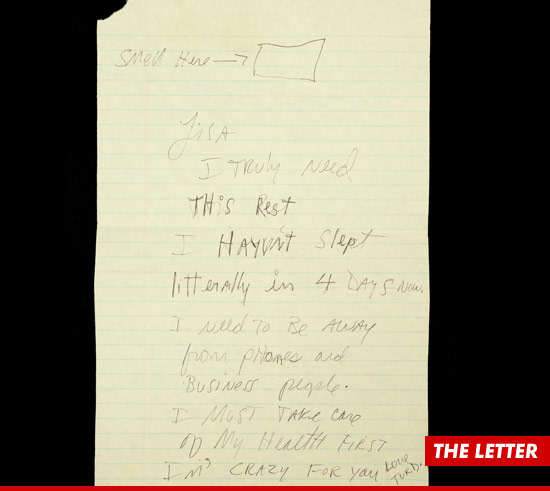 Smell Here →
Lisa
I TRuly Need
THis Rest
I HAven't Slept
litterally in 4 DAYS Now.
I need To Be AwAy
from pHones and
BusiNess people.
I Must TAKe care
of My HealtH FiRST
I'm' CRAZY FOR you Love
TURD.
THE LETTER